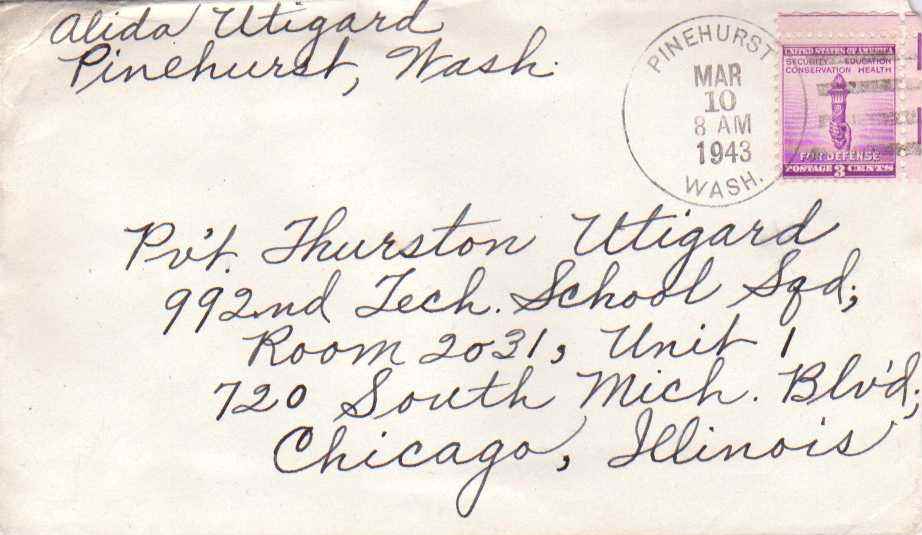 Alida Utigard
Pinehurst, Wash.
PINEHURST
MAR
10
8 AM
1943
WASH.
UNITED STATES OF AMERICA
SECURITY EDUCATION
CONSERVATION HEALTH
FOR DEFENSE
POSTAGE 3 CENTS
Pv't. Thurston Utigard
992nd Tech. School Sqd;
Room 2031, Unit 1
720 South Mich. Blv'd;
Chicago, Illinois